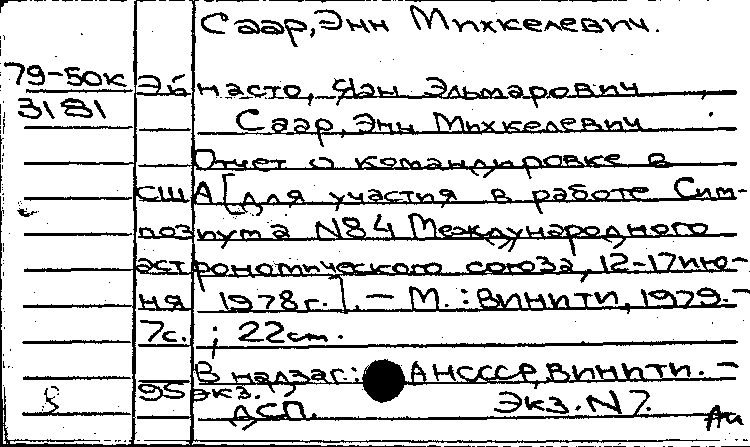 Саар, Энн Михкелевич.
79-50к Эйнасто, Яэн Эльмарович
3181 Саар, Энн Михкелевич
Отчет о командировке в
США [для участия в работе Сим-
позиума N84 Международного
астрономического союза, 12-17 ию-
ня 1978г.]. – М.: ВИНИТИ, 1979. –
7с. ; 22см.
В надзаг.: АН СССР, ВИНИТИ. –
95 экз.;
8 ДСП. Экз. N7.